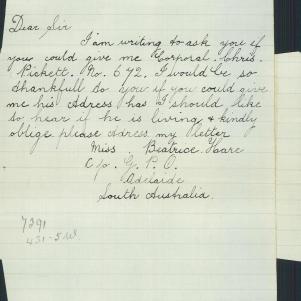 Dear Sir
I am writing to ask you if
you could give me Corporal. Chris.
Pickett. No. 672. I would be so
thankfull to you if you could give
me his Adress has I should like
to hear if he is living & kindly
oblige please Adress my letter
Miss. Beatrice. Hoare
C/o. G. P. O.
Adelaide
South Australia.
7291